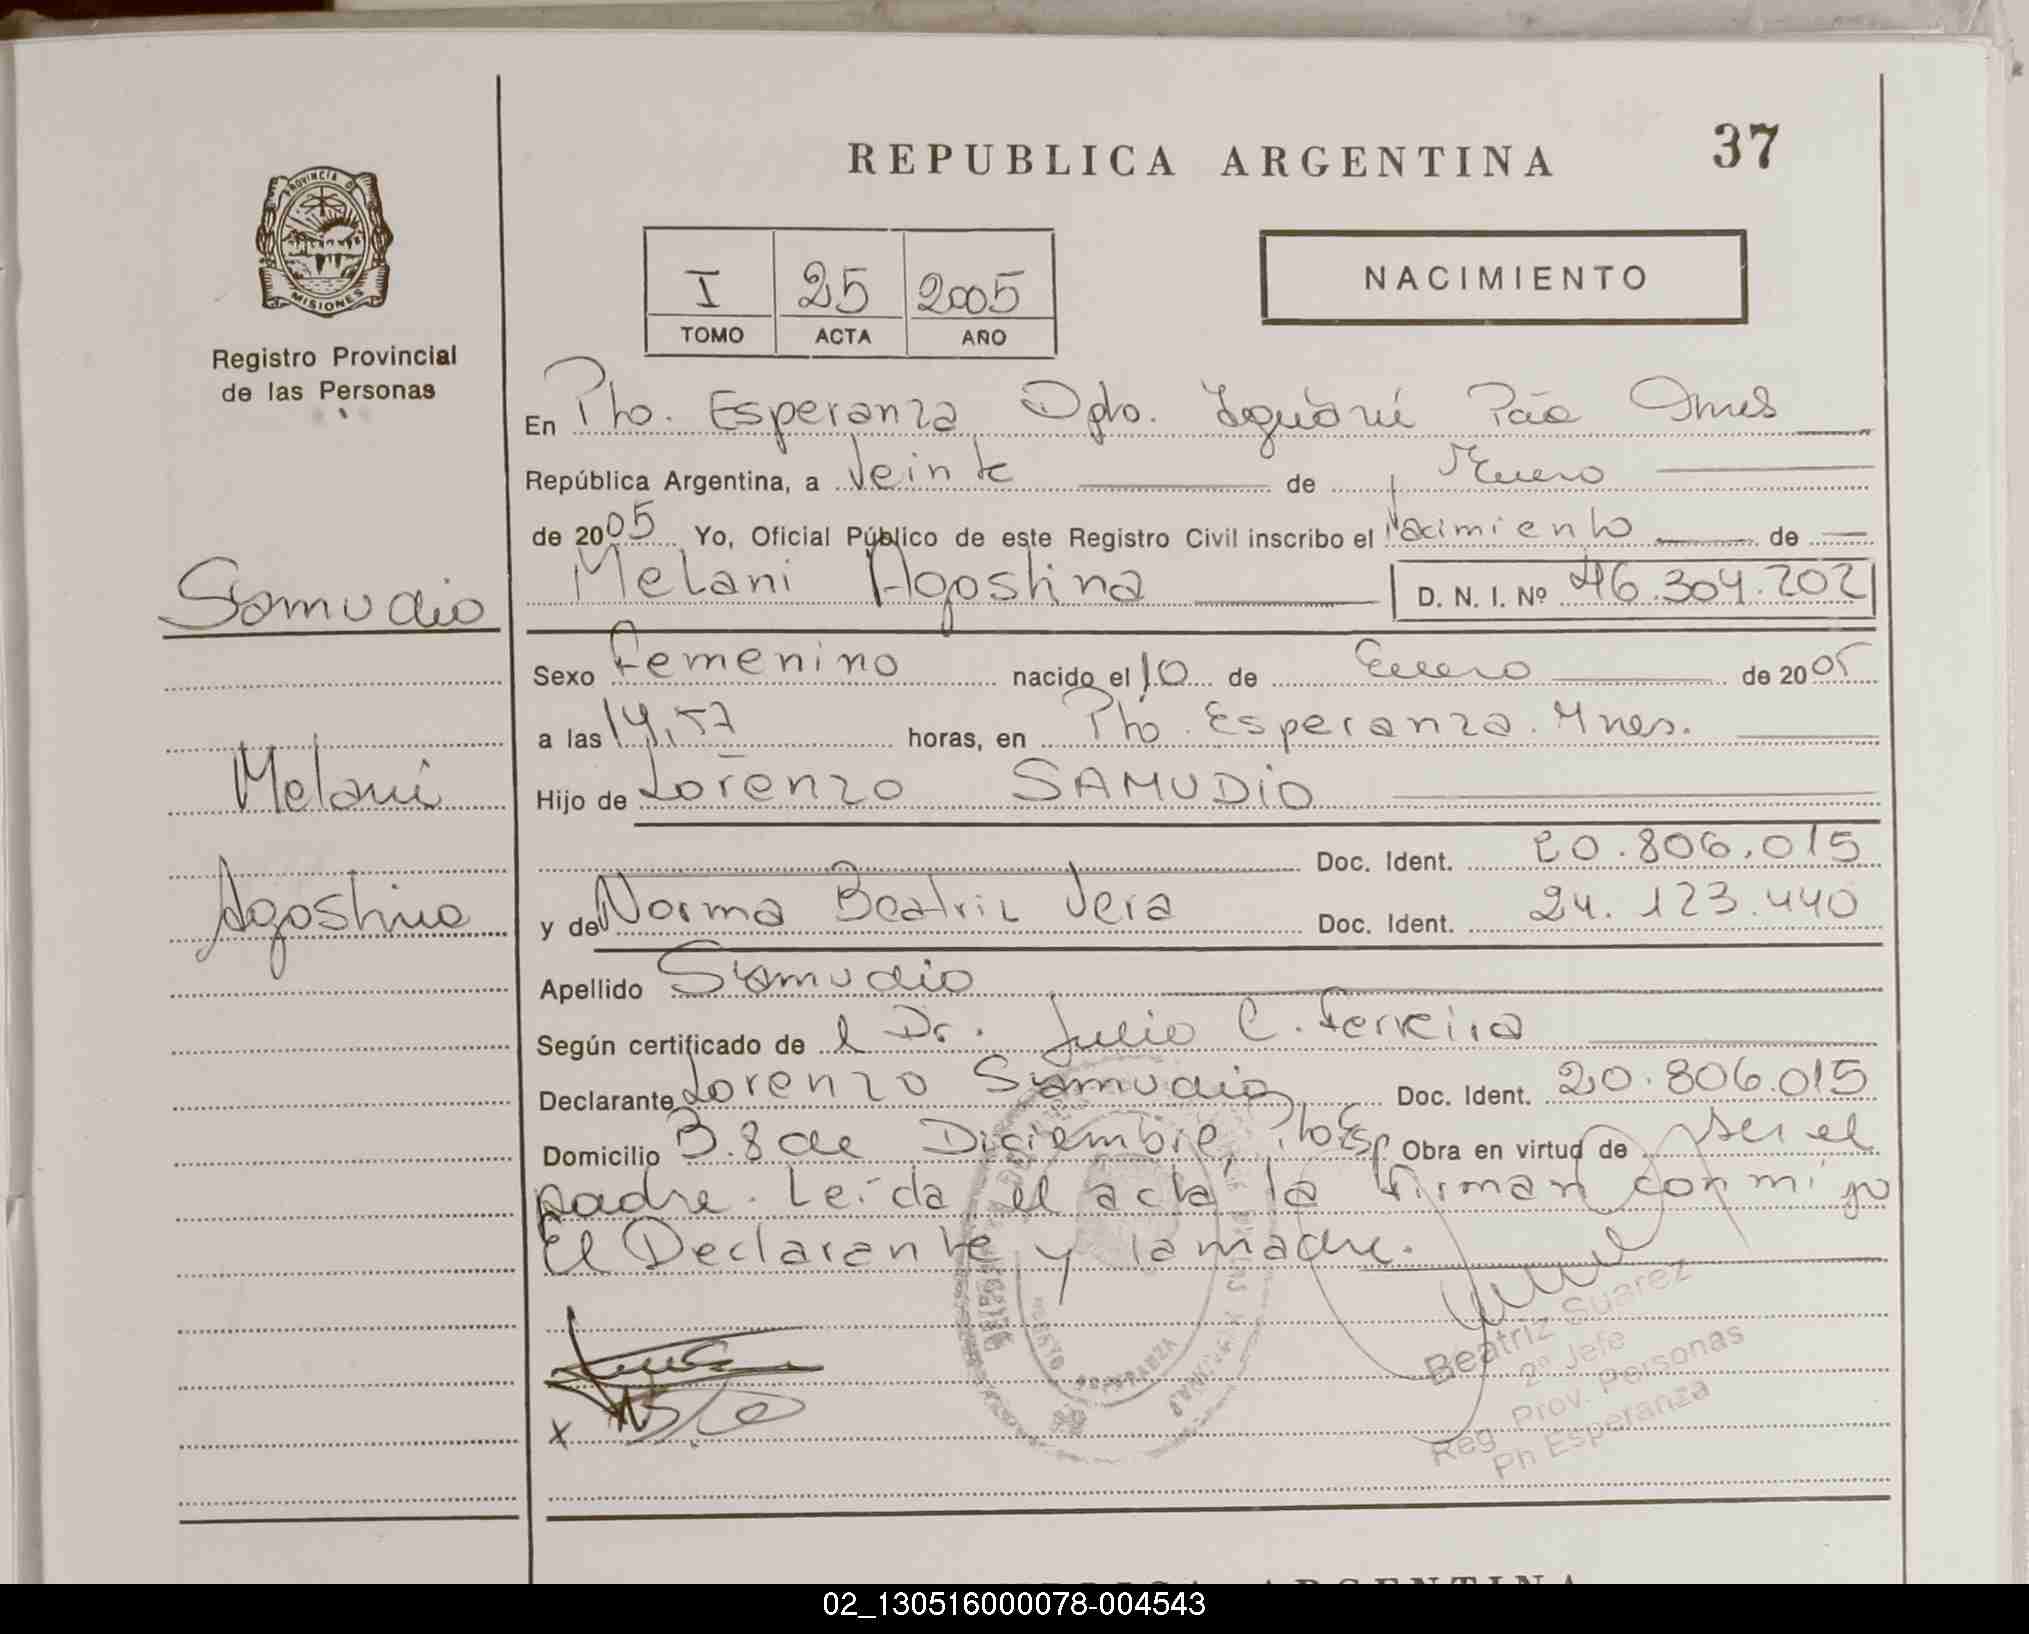 REPUBLICA ARGENTINA
37
PROVINCIA DE
MISIONES
Registro Provincial
de las Personas
I 25 2005
TOMO ACTA AÑO
NACIMIENTO
En Pto. Esperanza Dpto. Iguazú Mnes
República Argentina, a Veinte de Enero
de 2005 Yo, Oficial Público de este Registro Civil inscribo el Nacimiento de
Samudio
Melani Agostina D. N. I. Nº 46.304.202
Sexo Femenino nacido el 10 de Enero de 2005
a las 14,57 horas, en Pto. Esperanza. Mnes.
Melani
Hijo de Lorenzo SAMUDIO
Doc. Ident. 20.806.015
Agostina
y de Norma Beatriz Vera Doc. Ident. 24.123.440
Apellido Samudio
Según certificado de l Dr. Julio C. Ferreira
Declarante Lorenzo Samudio Doc. Ident. 20.806.015
Domicilio B. 8 de Diciembre, Pto Esp Obra en virtud de ser el
padre. Leída el acta la firman conmigo
El Declarante y la madre.
Beatriz Suarez
2º Jefe
Reg. Prov. Personas
Pn Esperanza
X
02_130516000078-004543